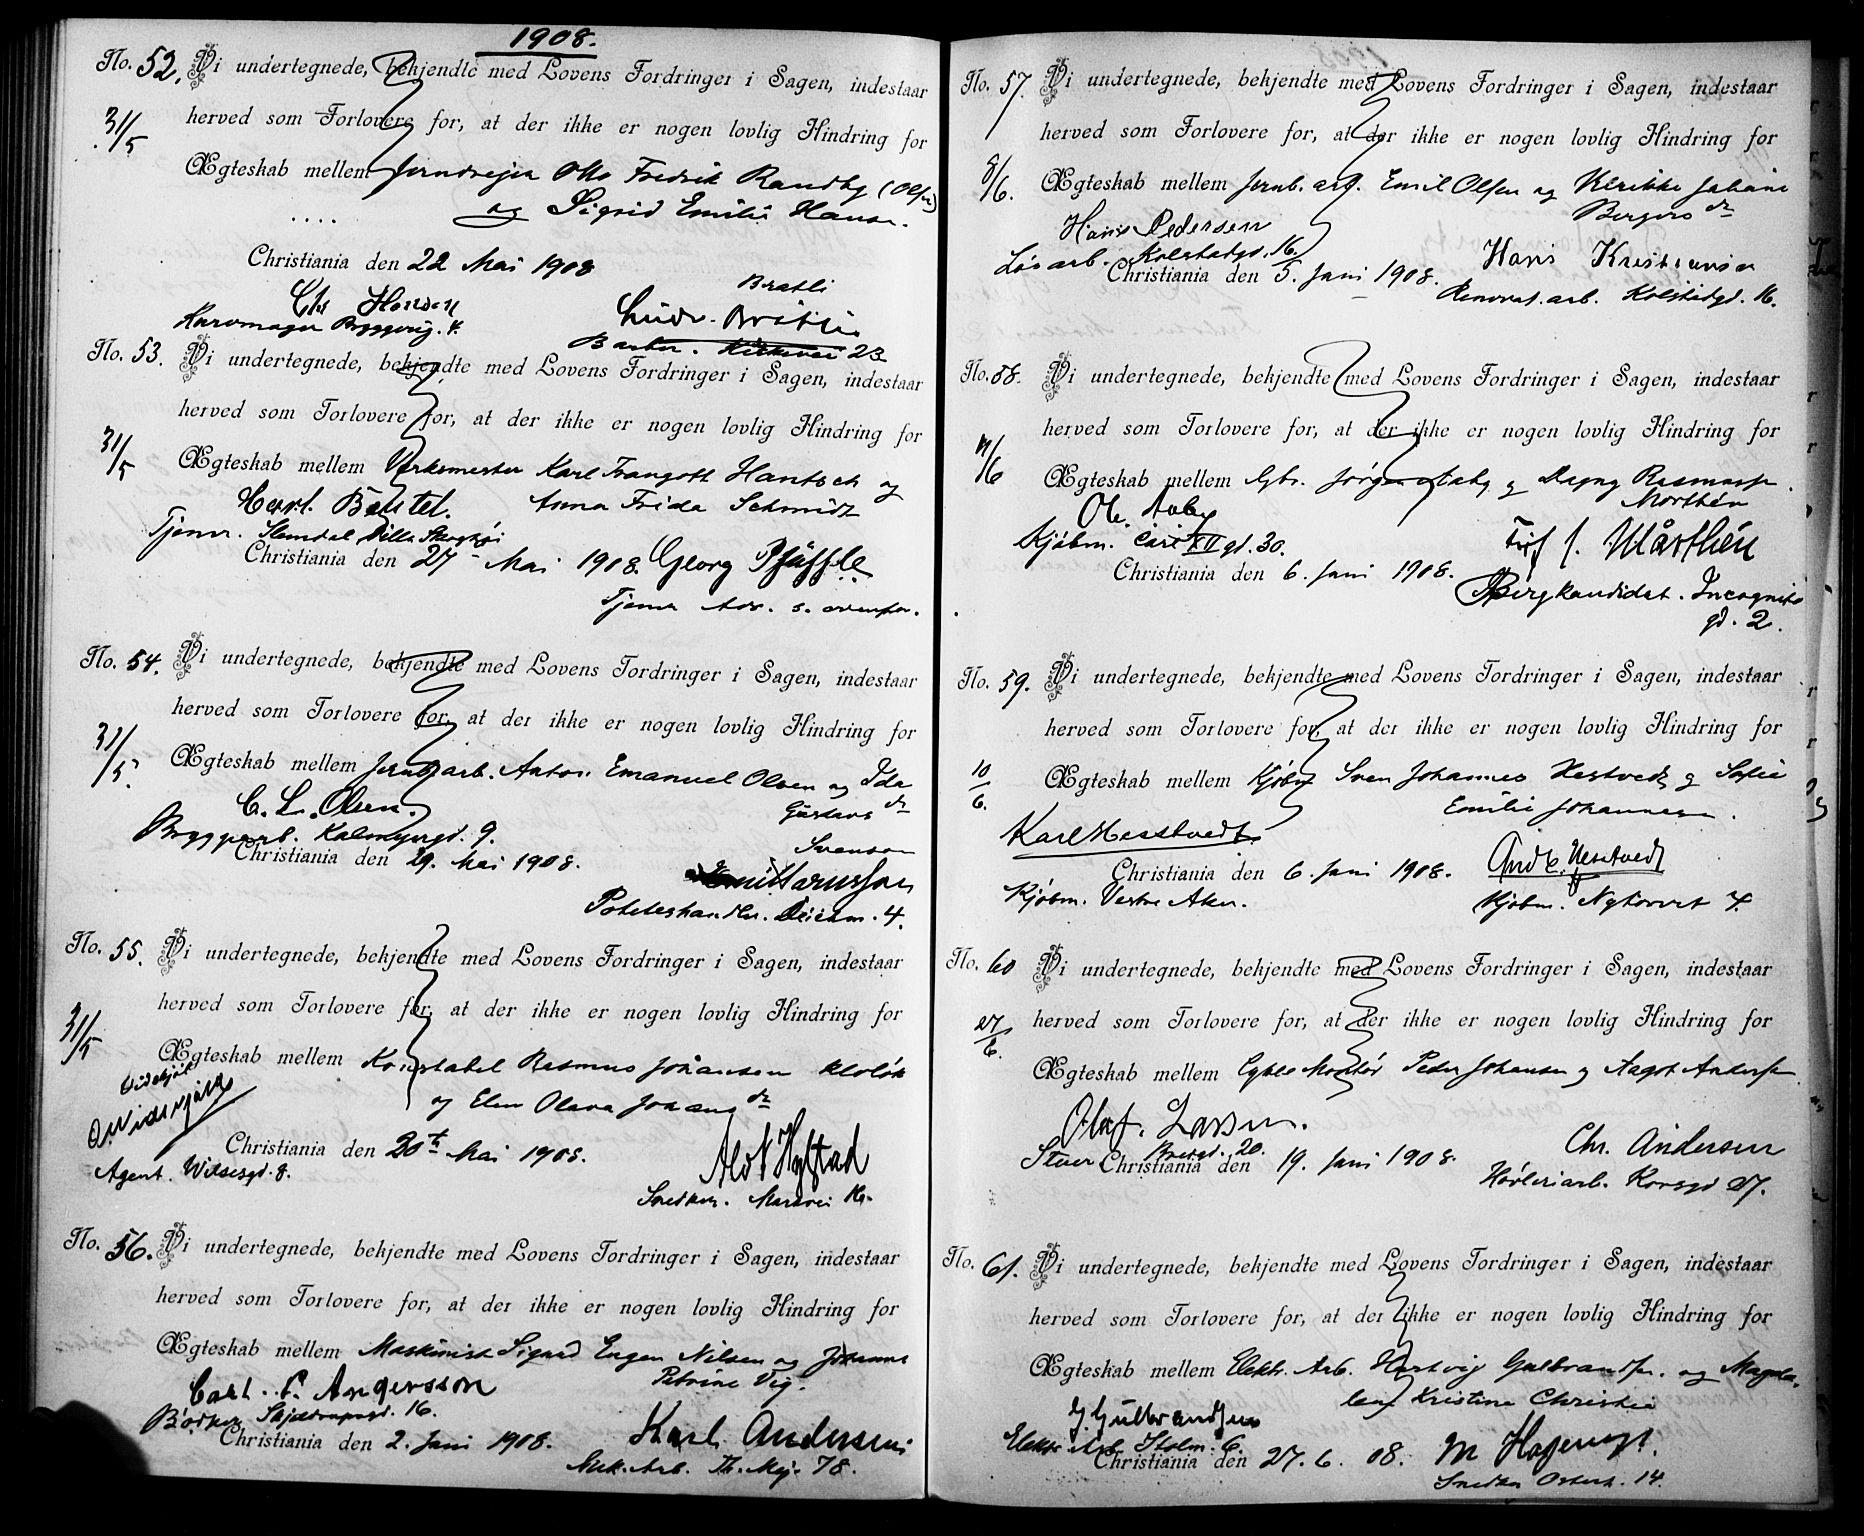 1908.
No. 52. Vi undertegnede, bekjendte med Lovens Fordringer i Sagen, indestaar
31/5
herved som Forlovere for, at der ikke er nogen lovlig Hindring for
Ægteskab mellem Jerndreier Otto Fredrik Randby (Olsen)
og Sigrid Emilie Hansen.
Christiania den 22 Mai 1908
Bratli
Chr Hansen
Ludv. Bratlie
Kurvmager Byggvig. 4.
Barber. Kirkevei 23
No. 53. Vi undertegnede, bekjendte med Lovens Fordringer i Sagen, indestaar
herved som Forlovere for, at der ikke er nogen lovlig Hindring for
31/5
Ægteskab mellem Verksmester Karl Traugott Hantsch og
Anna Frida Schmidt
Tjener. Slemdal Villa
Christiania den 27 Mai 1908. Georg Pfäffle
Tjener Adr. s. ovenfor.
No. 54. Vi undertegnede, bekjendte med Lovens Fordringer i Sagen, indestaar
herved som Forlovere for, at der ikke er nogen lovlig Hindring for
31/5
Ægteskab mellem Jernbarb. Anton Emanuel Olsen og Ida
C. L. Olsen.
Gustavs dr
Byggarb. Kalmeyergd. 9.
Svenson
Christiania den 29. Mai 1908.
Poteteshandler. Deichm. 4.
No. 55. Vi undertegnede, bekjendte med Lovens Fordringer i Sagen, indestaar
herved som Forlovere for, at der ikke er nogen lovlig Hindring for
31/5
Ægteskab mellem Konstabel Rasmus Johansen
og Elen Olava Johans dr
Christiania den 30te Mai 1908.
Agent. Wilsesgd. 8.
Alot Hystad
Snedker. Markvei 16.
No. 56. Vi undertegnede, bekjendte med Lovens Fordringer i Sagen, indestaar
herved som Forlovere for, at der ikke er nogen lovlig Hindring for
Ægteskab mellem Maskinist Sigurd Eugen Nilsen og Johanne
Petrine Vig.
Carl. P. Andersson
Bødker 16.
Christiania den 2. Juni 1908.
Karl Andersen
Mek. Arb. Th. Mej. 78.
No. 57. Vi undertegnede, bekjendte med Lovens Fordringer i Sagen, indestaar
herved som Forlovere for, at der ikke er nogen lovlig Hindring for
8/6.
Ægteskab mellem Jernb. arb. Emil Olsen og Ulrikke Jahane
Bergers dr
Hans Pedersen
Løsarb. Kolstadgd. 16.
Christiania den 5. Juni 1908.
Hans Kristiansen
Renovat. arb. Kolstadgd. 16.
No. 58. Vi undertegnede, bekjendte med Lovens Fordringer i Sagen, indestaar
herved som Forlovere for, at der ikke er nogen lovlig Hindring for
Ægteskab mellem Gbr. Jørgen Aaby og Dagny Rasmussen
Morthén
Ole Aaby
Kjøbm. Carl XII gd. 30.
J. Mårthén
Christiania den 6. Juni 1908.
Bergkandidat. Incognito
gd. 2.
No. 59. Vi undertegnede, bekjendte med Lovens Fordringer i Sagen, indestaar
herved som Forlovere for, at der ikke er nogen lovlig Hindring for
10/6.
Ægteskab mellem Kjøbm Sven Johannes Hestvedt og Sofie
Emilie Johannesen.
Karl Hesstvedt
Christiania den 6. Juni 1908.
And E. Hestvedt
Kjøbm. Vestre Aker.
Kjøbm. Nytorvet 7.
No. 60 Vi undertegnede, bekjendte med Lovens Fordringer i Sagen, indestaar
herved som Forlovere for, at der ikke er nogen lovlig Hindring for
27/6.
Ægteskab mellem Cykle Montør Peder Johansen og Aagot Andersen
Olaf. Larsen.
20.
Christiania den 19. Juni 1908.
Chr. Andersen
Høvleriarb. Korsgd 27.
No. 61. Vi undertegnede, bekjendte med Lovens Fordringer i Sagen, indestaar
herved som Forlovere for, at der ikke er nogen lovlig Hindring for
Ægteskab mellem Elektr. Arb. Hartvig Gulbrandsen. og Magda-
lena Kristine Christie
G Gulbrandsen
Elektr. Arb. Stolm. 6.
Christiania den 27. 6. 08.
M Hagenags.
Snedker Osterh. 14.